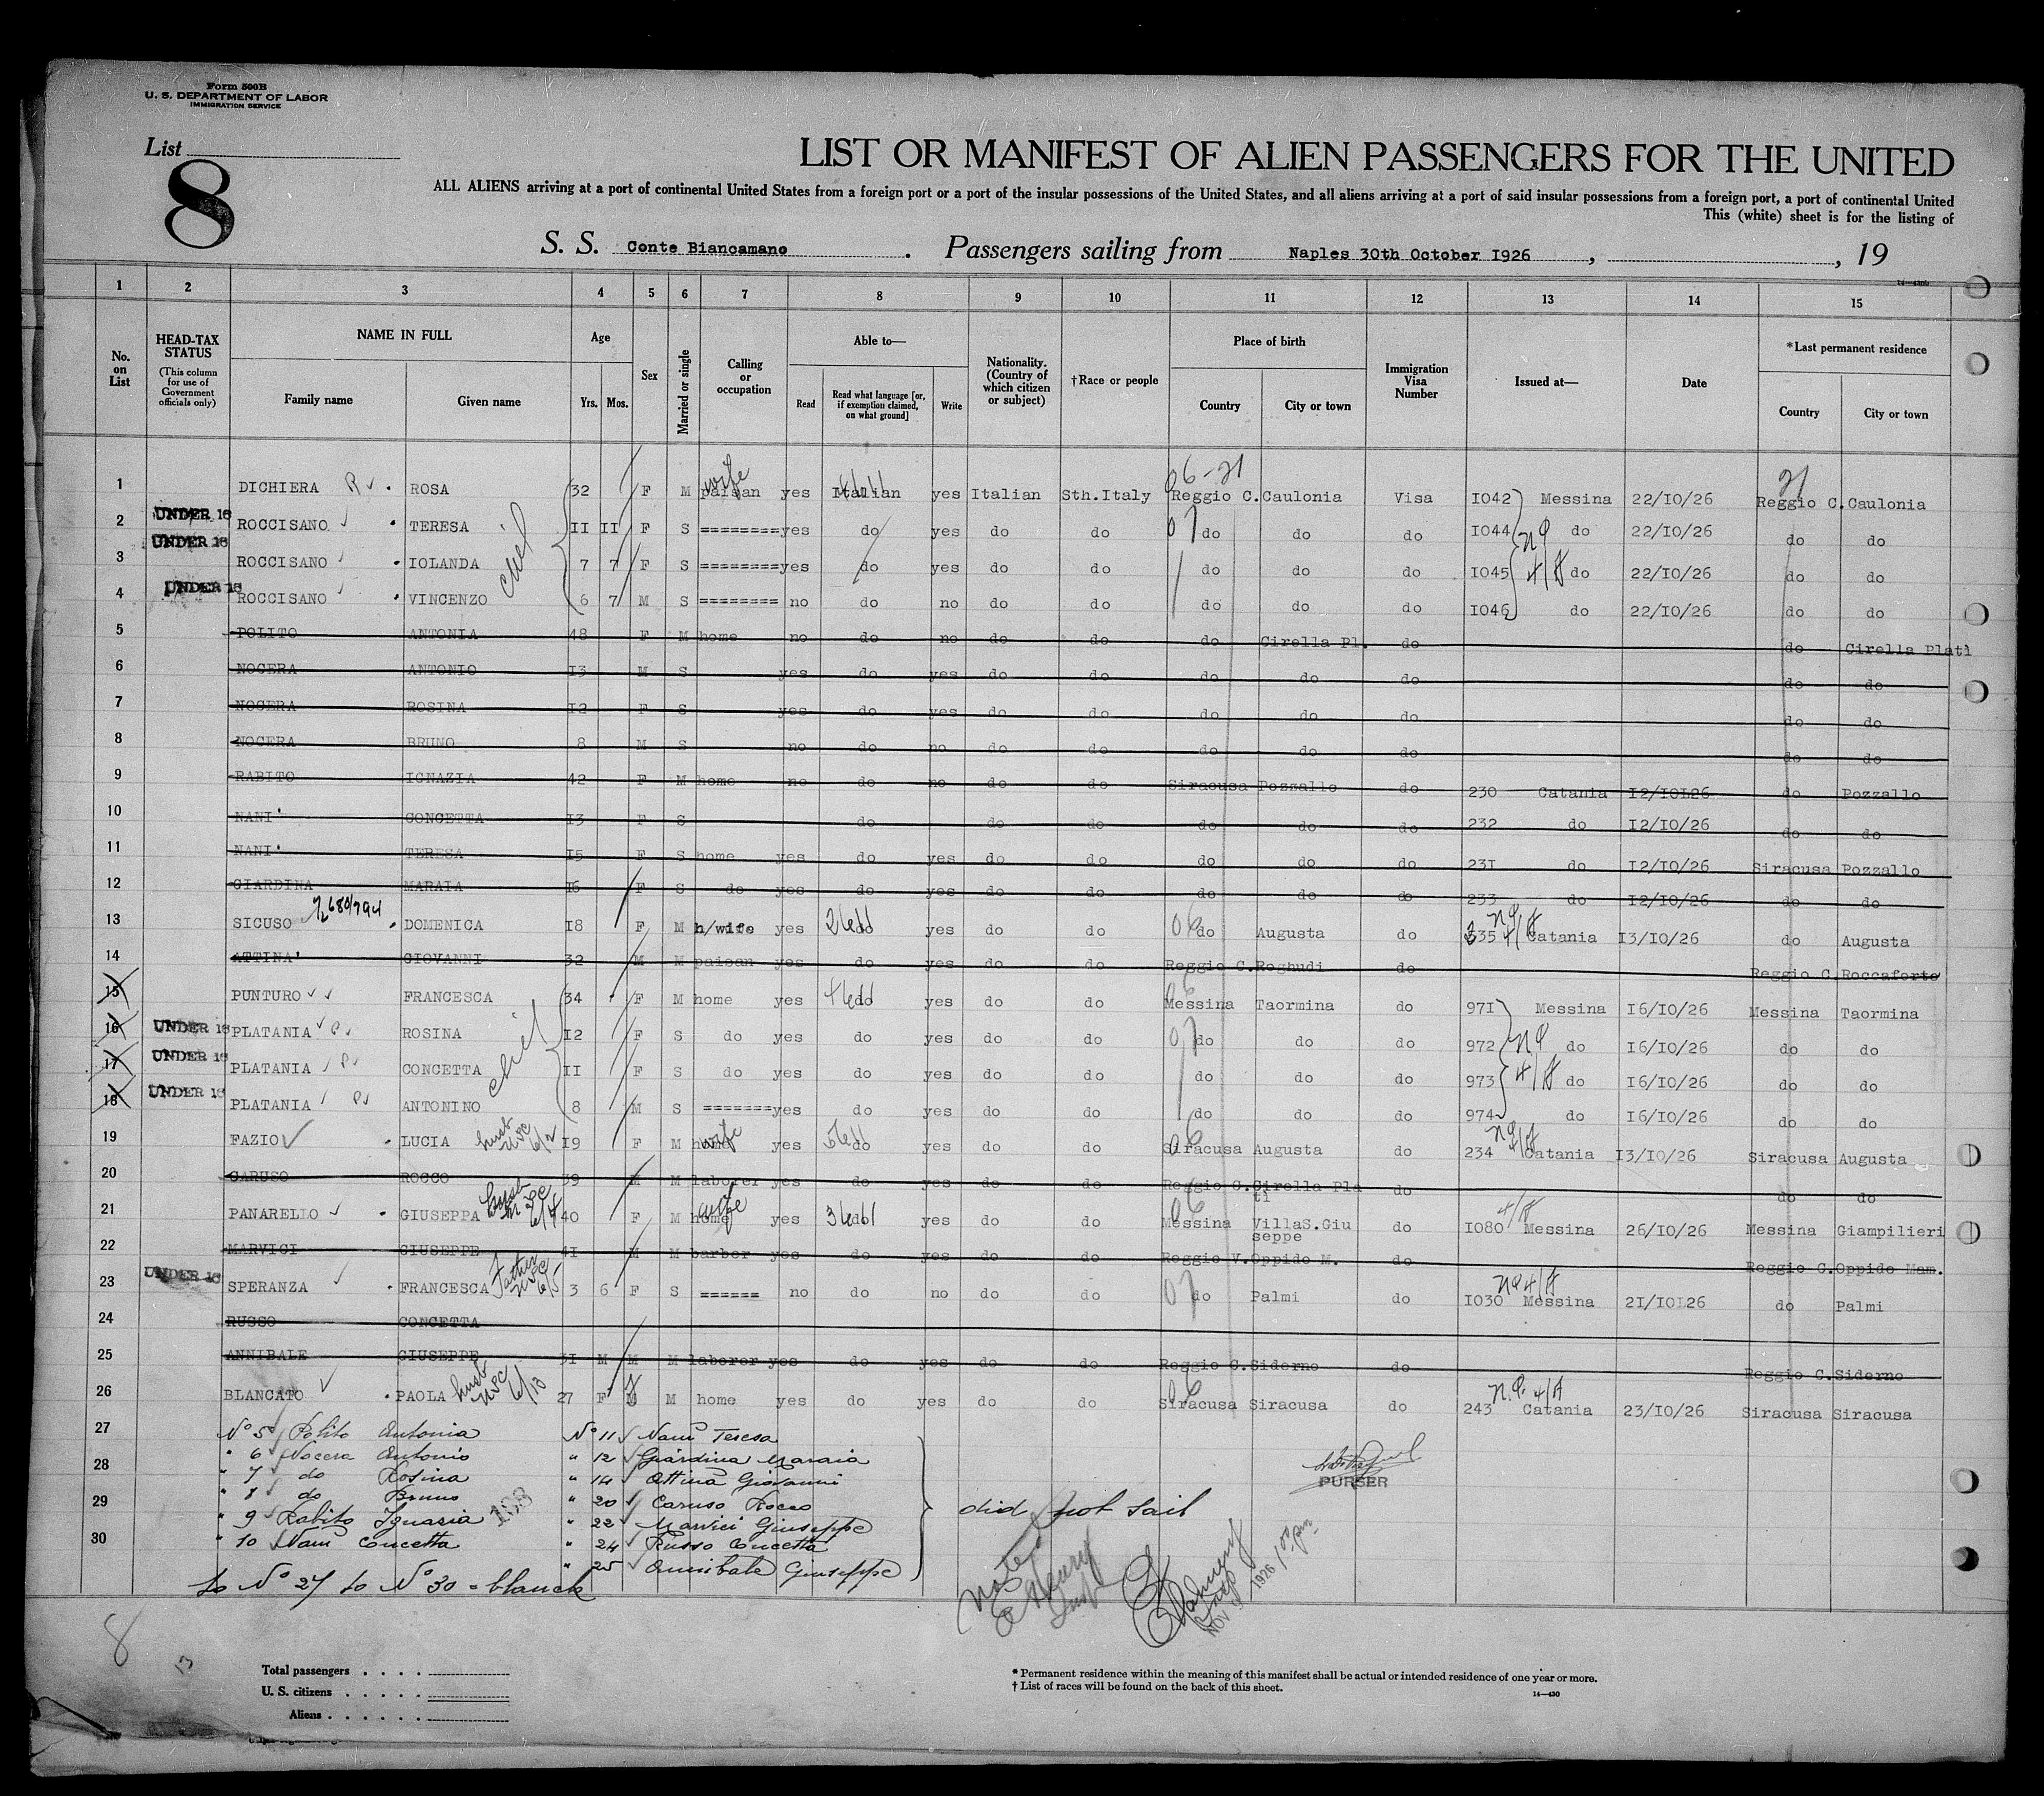 Form 500B
U. S. DEPARTMENT OF LABOR
IMMIGRATION SERVICE
List
8
LIST OR MANIFEST OF ALIEN PASSENGERS FOR THE UNITED
ALL ALIENS arriving at a port of continental United States from a foreign port or a port of the insular possessions of the United States, and all aliens arriving at a port of said insular possessions from a foreign port, a port of continental United
This (white) sheet is for the listing of
S. S. Conte Biancamano. Passengers sailing from Naples 30th October I926, , 19
1 2 3 4 5 6 7 8 9 10 11 12 13 14 15
No. on List
HEAD-TAX STATUS (This column for use of Government officials only)
NAME IN FULL
Family name Given name
Age
Yrs. Mos.
Sex
Married or single
Calling or occupation
Able to—
Read Read what language [or, if exemption claimed, on what ground] Write
Nationality. (Country of which citizen or subject)
†Race or people
Place of birth
Country City or town
Immigration Visa Number
Issued at—
Date
*Last permanent residence
Country City or town
1 DICHIERA ROSA 32 F M paisan wife yes Italian yes Italian Sth.Italy Reggio C. Caulonia Visa I042 Messina 22/I0/26 Reggio C. Caulonia
2 UNDER 16 ROCCISANO TERESA II II F S ======== yes do yes do do do do do I044 do 22/I0/26 do do
3 UNDER 16 ROCCISANO IOLANDA 7 7 F S ======== yes do yes do do do do do I045 do 22/I0/26 do do
4 UNDER 16 ROCCISANO VINCENZO 6 7 M S ======== no do no do do do do do I046 do 22/I0/26 do do
5 POLITO ANTONIA 48 F M home no do no do do do Cirella Pl. do do Cirella Platì
6 NOCERA ANTONIO I3 M S yes do yes do do do do do do do
7 NOCERA ROSINA I2 F S yes do yes do do do do do do do
8 NOCERA BRUNO 8 M S no do no do do do do do do do
9 RABITO IGNAZIA 42 F M home no do no do do Siracusa Pozzallo do 230 Catania I2/I0I26 do Pozzallo
10 NANI' CONCETTA I3 F S do do do do do do 232 do I2/I0/26 do do
11 NANI' TERESA I5 F S home yes do yes do do do do do 23I do I2/I0/26 Siracusa Pozzallo
12 GIARDINA MARAIA I6 F S do yes do yes do do do do do 233 do I2/I0/26 do do
13 SICUSO DOMENICA I8 F M h/wife yes do yes do do do Augusta do 235 Catania I3/I0/26 do Augusta
14 ATTINA' GIOVANNI 32 M M paisan yes do yes do do Reggio C. Roghudi do Reggio C. Roccaforte
15 PUNTURO FRANCESCA 34 F M home yes do yes do do Messina Taormina do 97I Messina I6/I0/26 Messina Taormina
16 UNDER 16 PLATANIA ROSINA I2 F S do yes do yes do do do do do 972 do I6/I0/26 do do
17 UNDER 16 PLATANIA CONCETTA II F S do yes do yes do do do do do 973 do I6/I0/26 do do
18 UNDER 16 PLATANIA ANTONINO 8 M S ======= yes do yes do do do do do 974 do I6/I0/26 do do
19 FAZIO LUCIA I9 F M home wife yes do yes do do Siracusa Augusta do 234 Catania I3/I0/26 Siracusa Augusta
20 CARUSO ROCCO 39 M M laborer yes do yes do do Reggio C. Cirella Pla tì do do do
21 PANARELLO GIUSEPPA 40 F M home wife yes do yes do do Messina VillaS.Giu seppe do I080 Messina 26/I0/26 Messina Giampilieri
22 MARVICI GIUSEPPE 4I M M barber yes do yes do do Reggio V. Oppido M. do Reggio C. Oppido Mam.
23 UNDER 16 SPERANZA FRANCESCA 3 6 F S ====== no do no do do do Palmi do I030 Messina 2I/I0I26 do Palmi
24 RUSSO CONCETTA
25 ANNIBALE GIUSEPPE 3I M M M laborer yes do yes do do Reggio C. Siderno do Reggio C. Siderno
26 BLANCATO PAOLA 27 F M M home yes do yes do do Siracusa Siracusa do 243 Catania 23/I0/26 Siracusa Siracusa
27
28
29
30
N° 5 Polito Antonia N° 11 Nani Teresa
" 6 Nocera Antonio " 12 Giardina Maraia
" 7 do Rosina " 14 Attinà Giovanni
" 8 do Bruno " 20 Caruso Rocco
" 9 Rabito Ignazia " 22 Marvici Giuseppe
" 10 Nani Concetta " 24 Russo Concetta
" 25 Annibale Giuseppe
did not sail
to N° 27 to N° 30 = blanck
PURSER
8
13
Total passengers . . . .
U. S. citizens . . . . .
Aliens . . . . . .
* Permanent residence within the meaning of this manifest shall be actual or intended residence of one year or more.
† List of races will be found on the back of this sheet.
14—430